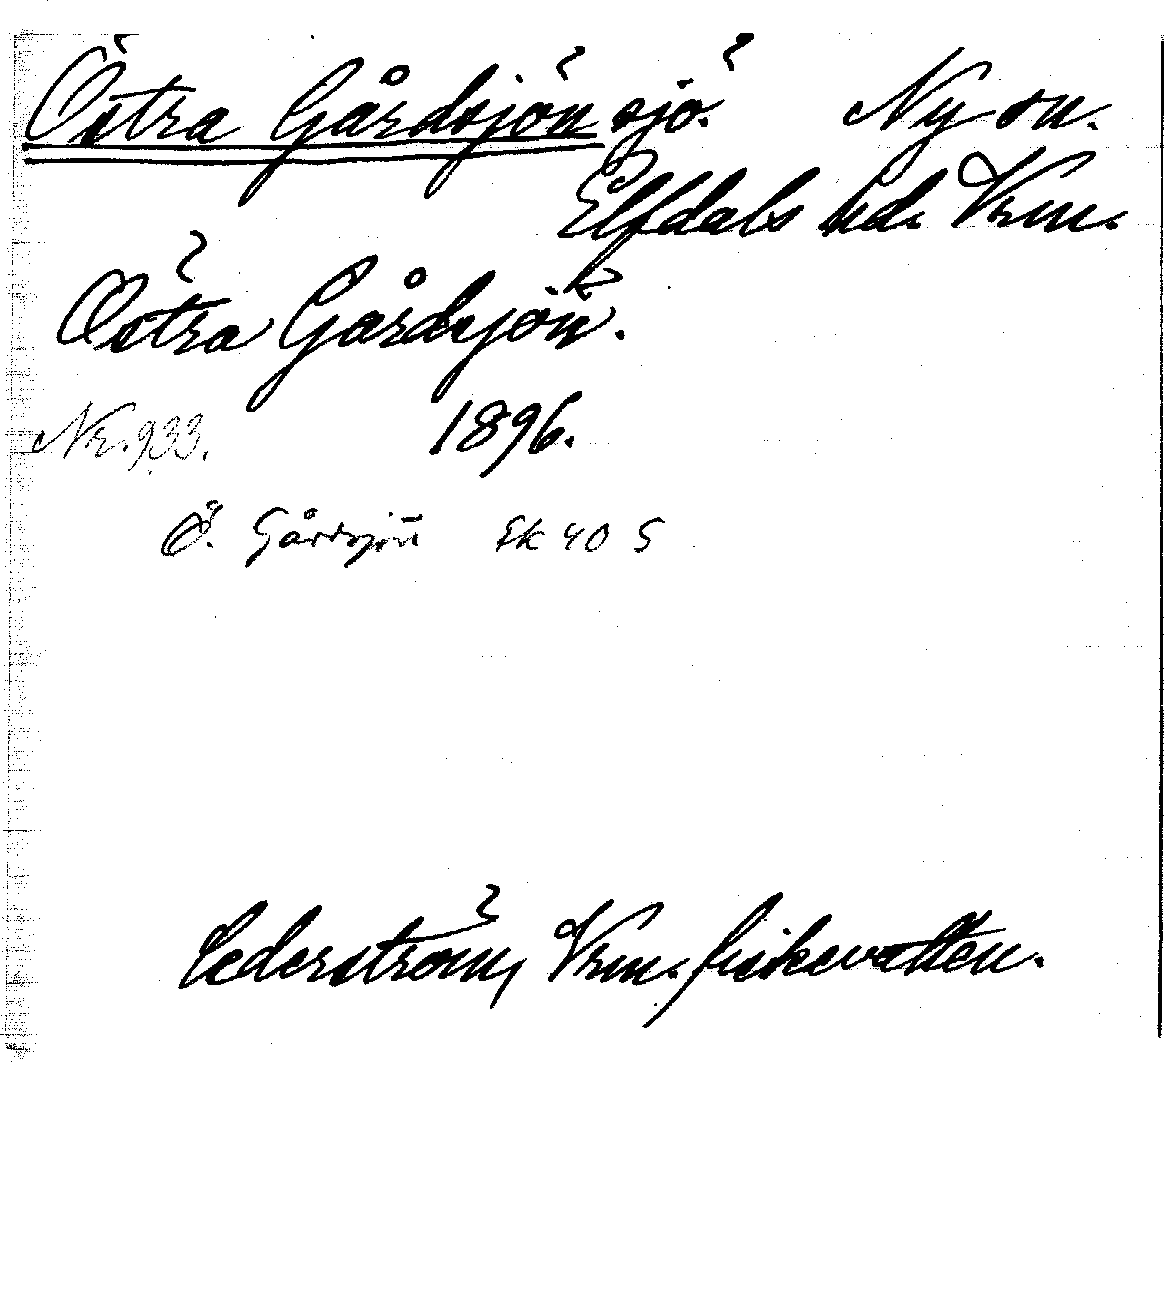 Östra Gårdsjön sjö. Ny sn.
Elfdals hd. Vrm.
Östra Gårdsjön.
Nr. 933. 1896.
Ö. Gårdsjön Ek 40 S
Cederström, Vrm. fiskevatten.